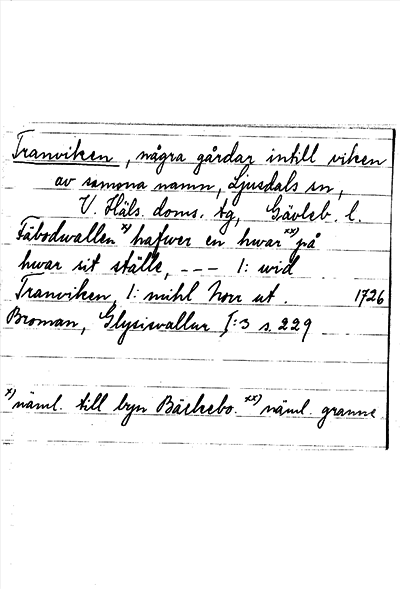 Tranviken, några gårdar intill viken
av samma namn, Ljusdals sn,
V. Häls. doms. tg, Gävleb. l.
Fäbodwallen x) hafwer en hwar xx) på
hwar sit ställe, --- 1: wid
Tranviken, 1: mihl norr ut. 1726
Broman, Glysisvallur I:3 s. 229
x) näml. till byn Bäckebo. xx) näml. granne.